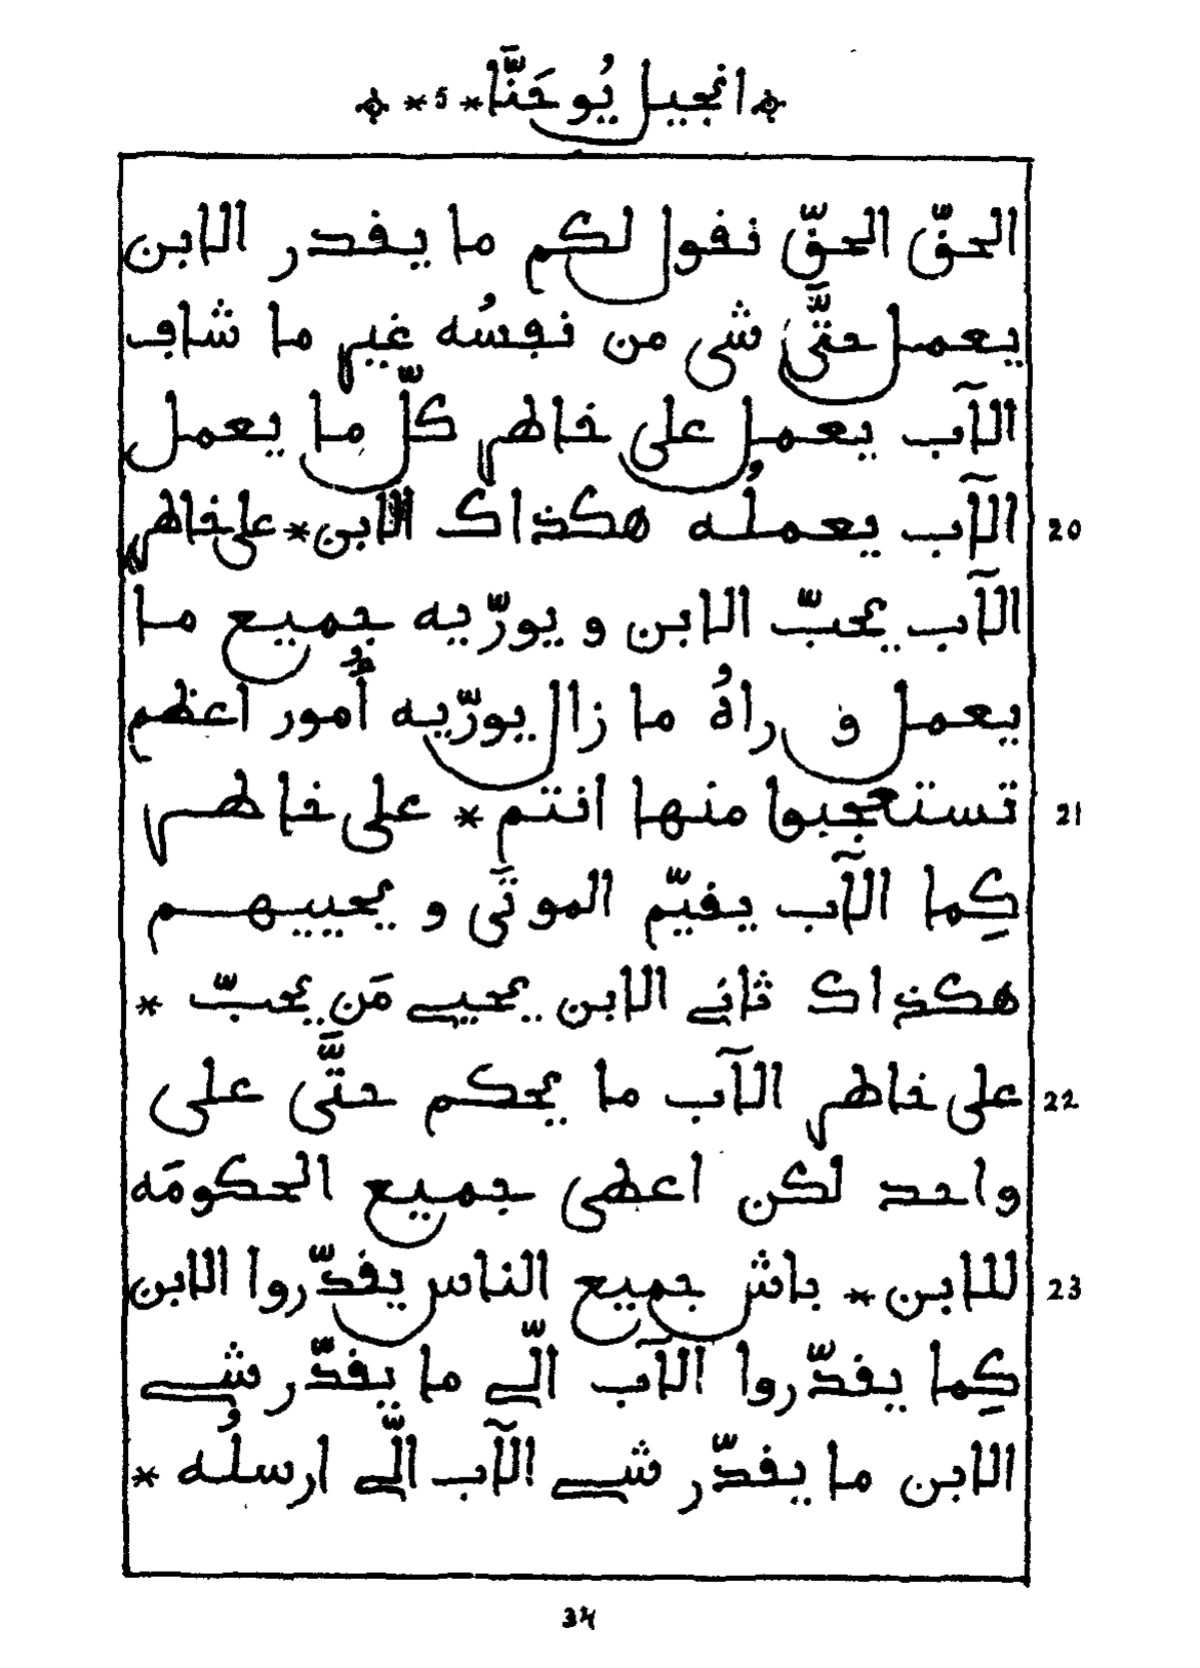 انجيل يُوحَنَّا * 5 *
الحقّ الحقّ نقول لكم ما يقدر الابن
يعمل حتَّى شي من نفسُه غير ما شاف
الآب يعمل على خاطر كلّ ما يعمل
20 الآب يعملُه هكذاك الابن * على خاطر
الآب يحبّ الابن و يورّيه جميع ما
يعمل و راهُ ما زال يورّيه أُمور اعظم
21 تستعجبوا منها انتم * على خاطر
كِما الآب يقيّم الموتَى و يحييهم
هكذاك ثاني الابن يحيي مَن يحبّ *
22 على خاطر الآب ما يحكم حتَّى على
واحد لكن اعطى جميع الحكومَه
23 للابن * باش جميع الناس يقدّروا الابن
كِما يقدّروا الآب الّي ما يقدّر شي
الابن ما يقدّر شي الآب الّي ارسلُه *
34